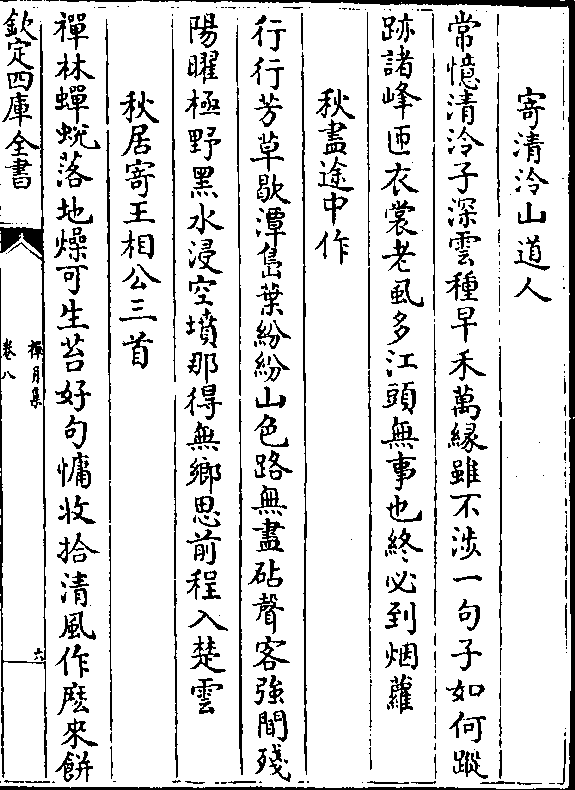 寄清泠山道人
常憶清泠子深雲種早禾萬緣雖不涉一句子如何蹤
跡諸峰匝衣裳老風多江頭無事也終必到烟蘿
秋盡途中作
行行芳草歇潭島葉紛紛山色路無盡砧聲客強聞殘
陽曜極野黑水浸空墳那得無鄉思前程入楚雲
秋居寄王相公三首
禪林蟬蛻落地燥可生苔好句慵收拾清風作麽來餅
欽定四庫全書
禪月集
卷八
六